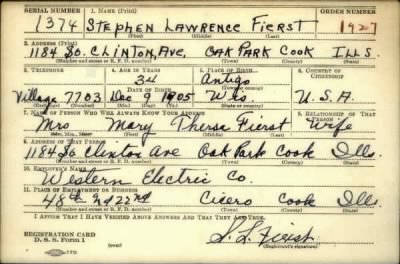 SERIAL NUMBER 1. NAME (Print) ORDER NUMBER
1374 STEPHEN LAWRENCE FIERST 1927
(First) (Middle) (Last)
2. ADDRESS (Print)
1184 SO. CLINTON, AVE, OAK PARK COOK ILLS.
(Number and street or R. F. D. number) (Town) (County) (State)
3. TELEPHONE 4. AGE IN YEARS 5. PLACE OF BIRTH 6. COUNTRY OF CITIZENSHIP
34 Antigo
DATE OF BIRTH (Town or county)
Village 7703 Dec 9 1905 Wis U.S.A.
(Exchange) (Number) (Mo.) (Day) (Yr.) (State or country)
7. NAME OF PERSON WHO WILL ALWAYS KNOW YOUR ADDRESS 8. RELATIONSHIP OF THAT PERSON
Mrs Mary Theresa Fierst Wife
(Mr., Mrs., Miss) (First) (Middle) (Last)
9. ADDRESS OF THAT PERSON
1184 So. Clinton Ave Oak Park Cook Ills.
(Number and street or R. F. D. number) (Town) (County) (State)
10. EMPLOYER'S NAME
Western Electric Co.
11. PLACE OF EMPLOYMENT OR BUSINESS
48th and 22nd Cicero Cook Ills.
(Number and street or R. F. D. number) (Town) (County) (State)
I AFFIRM THAT I HAVE VERIFIED ABOVE ANSWERS AND THAT THEY ARE TRUE.
REGISTRATION CARD S. L. Fierst
D. S. S. Form 1 (Registrant's signature)